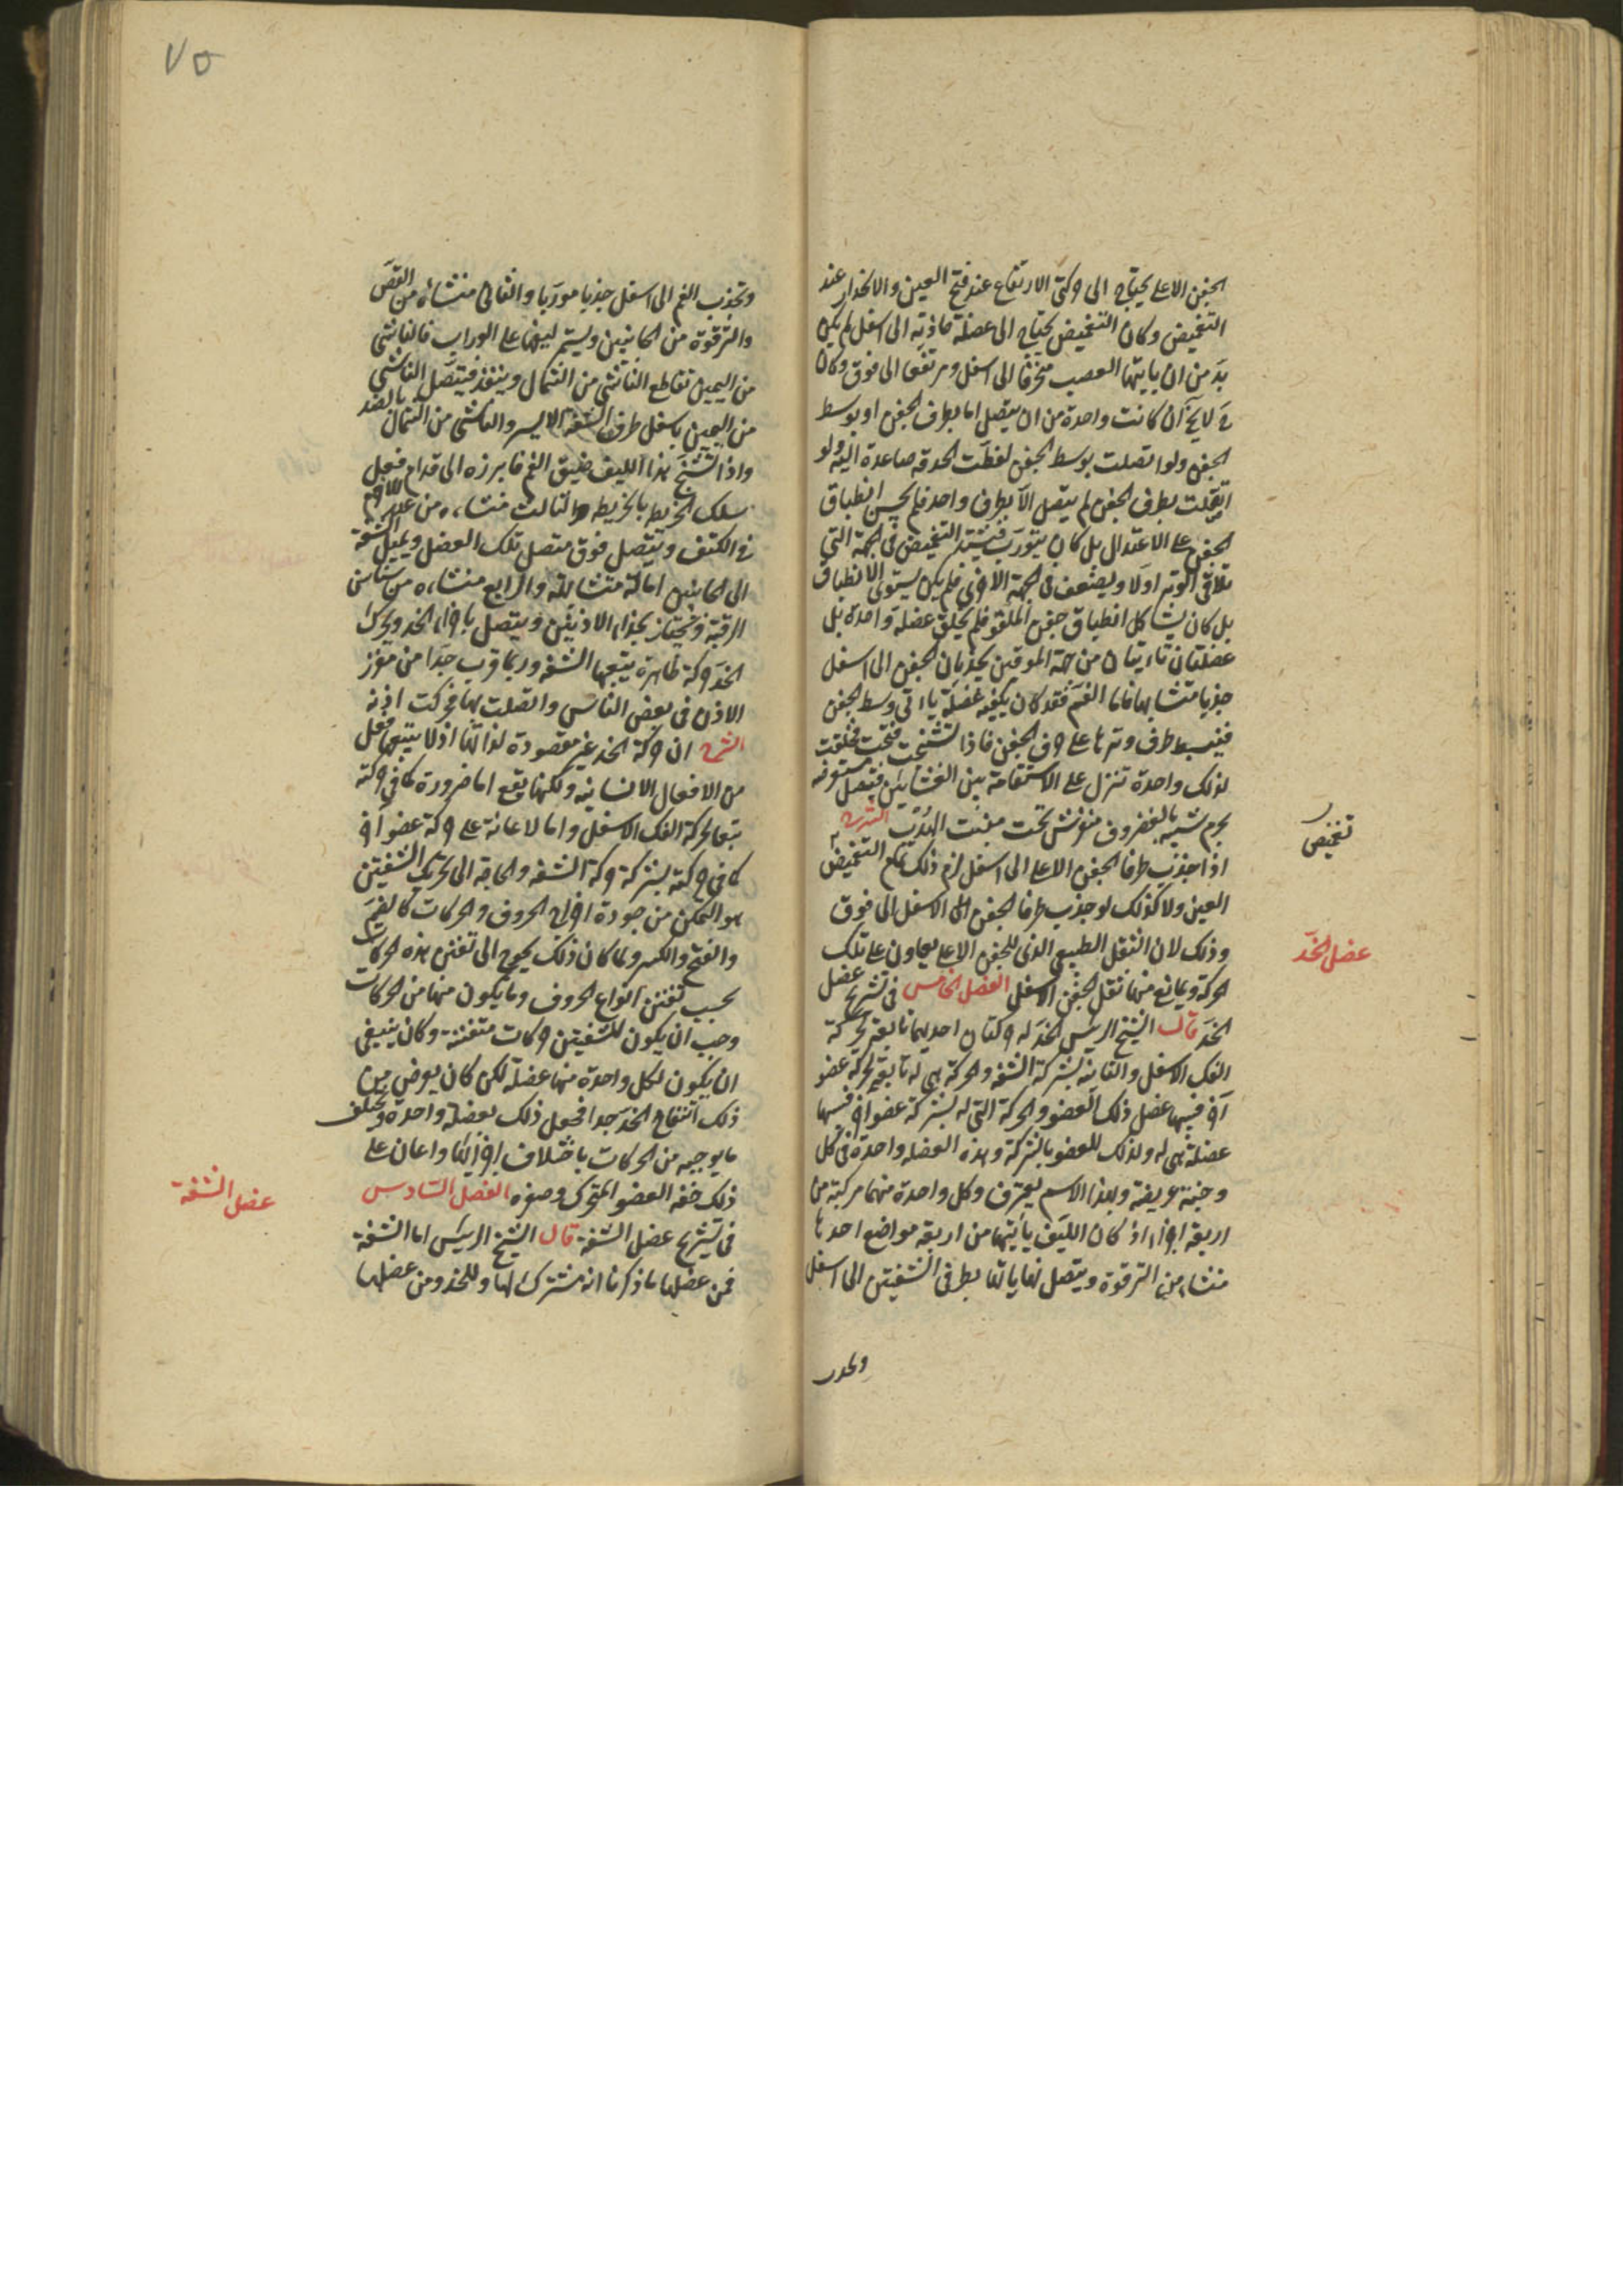 الجفن الاعلى يحتاج الى حركتى الارتفاع عند فتح العين والانحدار عند
التغميض وكان التغميض يحتاج الى عضلة جاذبة الى اسفل لم يكن
بد من ان ياتيها العصب منحرفا الى اسفل ومرتفعا الى فوق وكان
ح لا يخ ان كانت واحدة من ان يتصل اما بطرف الجفن او بوسط
الجفن ولو اتصلت بوسط الجفن لغطت الحدقة صاعدة اليه ولو
اتصلت بطرف الجفن لم يتصل الا بطرف واحد فلم يحسن انطباق
الجفن على الاعتدال بل كان يتورب فيشتد التغميض فى الجهة التى
تلاقى الوتر اولا ويضعف فى الجهة الاخرى فلم يكن يستوى الانطباق
بل كان يشاكل انطباق جفن الملقو فلم يخلق عضلة واحدة بل
عضلتان ناتيتان من جهة الموقين يجذبان الجفن الى اسفل
جذبا متشابها فاما الفتح فقد كان يكفيه عضلة تاتى وسط الجفن
فينبسط طرف وترها على حرف الجفن فاذا تشنجت فتحت فخلقت
لذلك واحدة تنزل على الاستقامة بين الغشائين فتتصل مستعرضة
بجرم شبيه بالغضروف منفرش تحت منبت الهدب الشرح
اذا جذب طرفا الجفن الاعلى الى اسفل لزم ذلك تمام التغميض
تغميض
العين ولا كذلك لو جذب طرفا الجفن الاسفل الى فوق
وذلك لان الثقل الطبيعى الذى للجفن الاعلى يعاون على تلك
عضل الخد
الحركة ويمانع منها ثقل الجفن الاسفل الفصل الخامس فى تشريح عضل
الخد قال الشيخ الرئيس الخد له حركتان احديهما تابعة لحركة
الفك الاسفل والثانية بشركة الشفة والحركة التى له تابعة لحركة عضو
آخر فسببها عضل ذلك العضو والحركة التى له بشركة عضو آخر فسببها
عضلة هى له ولذلك للعضو بالشركة وهذه العضلة واحدة فى كل
وجنة عريضة وبهذا الاسم يعرف وكل واحدة منهما مركبة من
اربعة اجزاء اذ كان الليف ياتيها من اربعة مواضع احدها
منشاه من الترقوة ويتصل نهاياتها بطرفى الشفتين الى اسفل
وتجذب
٧٥
وتجذب الفم الى اسفل جذبا موربا والثانى منشاه من القص
والترقوة من الجانبين ويستمر ليفها على الوراب فالناشى
من اليمين تقاطع الناشى من الشمال وينفذ فيتصل الناشى
من اليمين باسفل طرف الشفة الايسر والناشى من الشمال بالضد
واذا تشنج هذا الليف ضيق الفم فابرزه الى قدام فعل
سلك الخريطة بالخريطة والثالث منشاه من عند الاخرم
فى الكتف ويتصل فوق متصل تلك العضل ويميل الشفة
الى الجانبين امالة متشابهة والرابع منشاه من سناسن
الرقبة ويجتاز بحذاء الاذنين ويتصل باجزاء الخد ويحرك
الخد حركة ظاهرة يتبعها الشفة وربما قرب جدا من مغرز
الاذن فى بعض الناس واتصلت بها فحركت اذنه
الشرح ان حركة الخد غير مقصودة لذاتها اذ لا يتبعها فعل
من الافعال الانسانية ولكنها تقع اما ضرورة كما فى حركته
تبعا لحركة الفك الاسفل واما لاعانة على حركة عضو آخر
كما فى حركته بشركة حركة الشفة والحاجة الى تحريك الشفتين
هو التمكن من جودة اخراج الحروف والحركات كالضم
والفتح والكسر ولما كان ذلك يحوج الى تفنن هذه الحركات
بحسب تفنن انواع الحروف وما يكون منها من الحركات
وجب ان يكون للشفتين حركات متفننة وكان ينبغى
ان يكون لكل واحدة منها عضلة لكن كان يعرض من
ذلك انتفاخ الخد جدا فجعل ذلك بعضلة واحدة ويختلف
ما يوجبه من الحركات باختلاف اجزائها واعان على
ذلك خفة العضو المتحرك وصغره الفصل السادس
عضل الشفة
فى تشريح عضل الشفة قال الشيخ الرئيس اما الشفة
فمن عضلها ما ذكرنا انه مشترك لها وللخد ومن عضلها